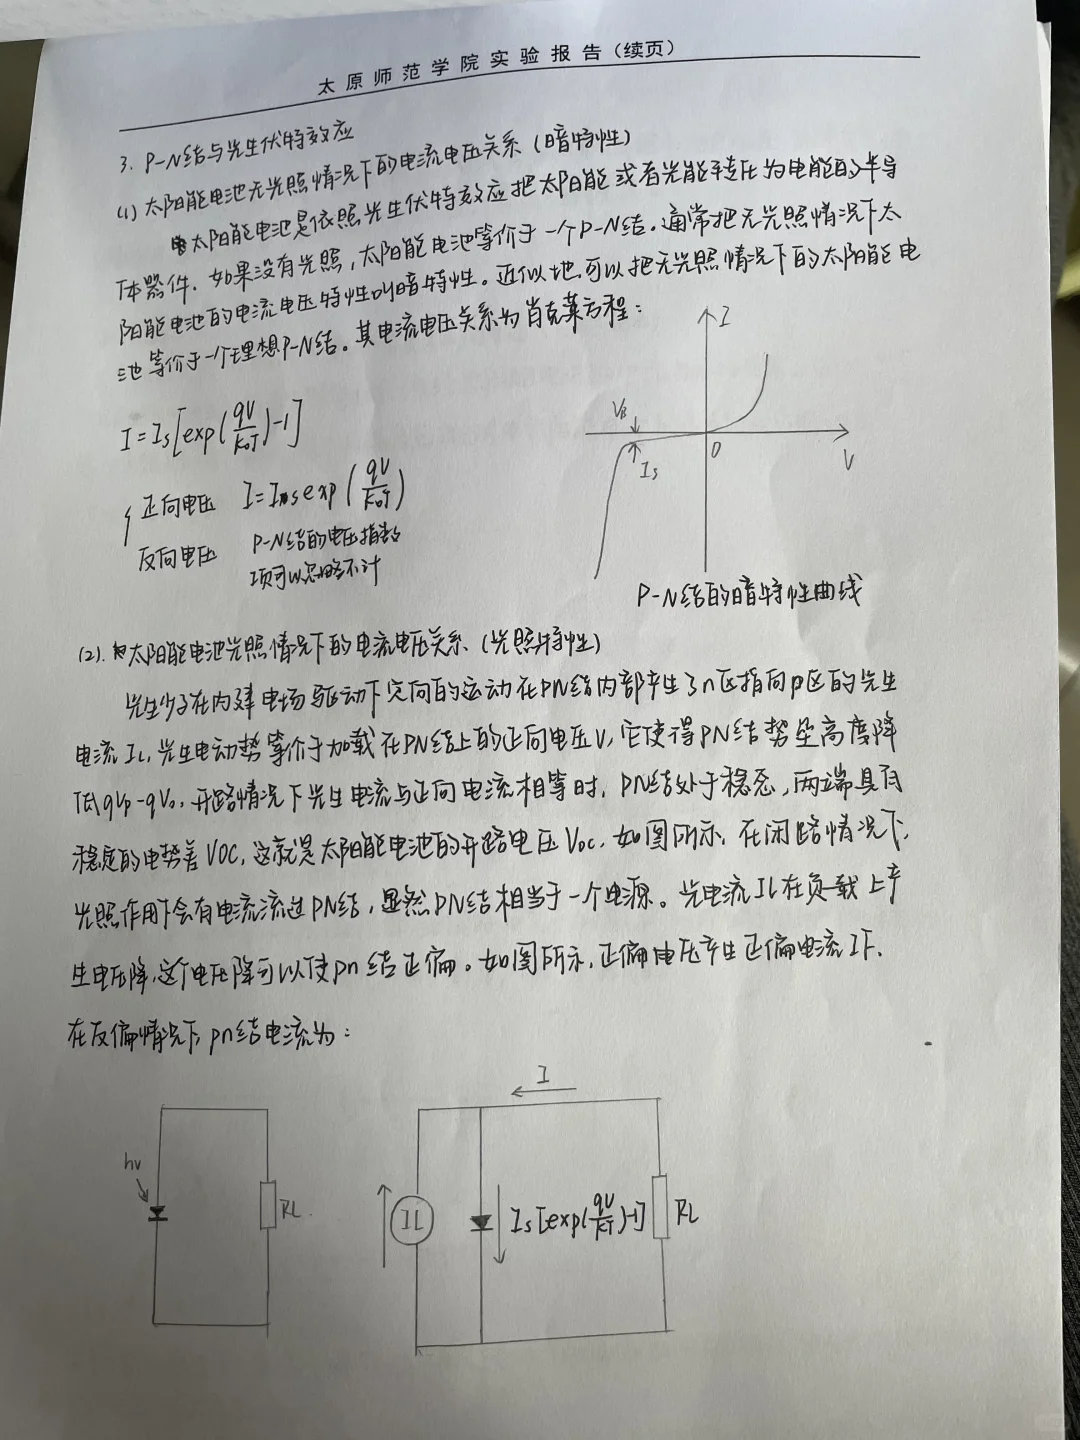 太原师范学院实验报告(续页)
3. P-N结与光生伏特效应
(1) 太阳能电池无光照情况下的电流电压关系(暗特性)
太阳能电池是依照光生伏特效应把太阳能或者光能转化为电能的半导
体器件. 如果没有光照,太阳能电池等价于一个P-N结。通常把无光照情况下太
阳能电池的电流电压特性叫暗特性。近似地,可以把无光照情况下的太阳能电
池等价于一个理想P-N结。其电流电压关系为肖克莱方程:
I=Is[exp(qV/K₀T)-1]
正向电压 I=Is exp(qV/K₀T)
反向电压 P-N结的电压指数
项可以忽略不计
I
VB
Is
O
V
P-N结的暗特性曲线
(2). 太阳能电池光照情况下的电流电压关系. (光照特性)
光生少子在内建电场驱动下定向的运动在PN结内部产生了n区指向p区的光生
电流IL, 光生电动势等价于加载在PN结上的正向电压V, 它使得PN结势垒高度降
低qVp-qV₀. 开路情况下光生电流与正向电流相等时, PN结处于稳态, 两端具有
稳定的电势差VOC, 这就是太阳能电池的开路电压Voc. 如图所示, 在闭路情况下,
光照作用下会有电流流过PN结, 显然PN结相当于一个电源。光电流IL在负载上产
生电压降, 这个电压降可以使pn结正偏。如图所示, 正偏电压产生正偏电流IF.
在反偏情况下, pn结电流为:
I
hv
RL
IL
Is[exp(qV/KT)-1]
RL